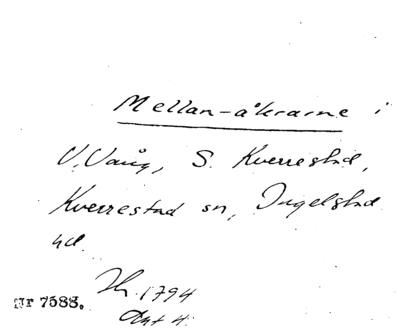 Mellan-åkrarne i
V. Vång, S. Kverrestad,
Kverrestad sn, Ingelstad
hd
Sk. 1794
nr 7588. Akt 4.